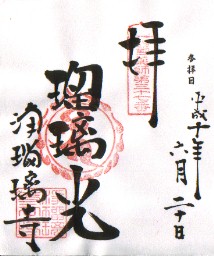 参拝日
平成十年
六月二十日
拝
瑠璃光
浄瑠璃寺